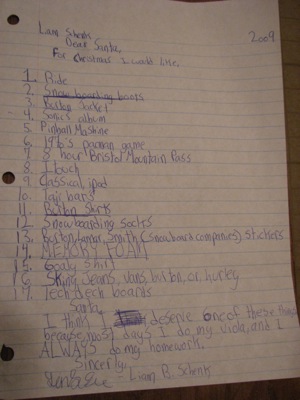 Liam Schents
2009
Dear Santa,
For Christmas I would like,
1. Ride
2. Snowboarding boots
3. Burton Jacket
4. Sonics album
5. Pinball Mashine
6. 1976's pacman game
7. 8 hour Bristol Mountain Pass
8. I touch
9. Classical ipod
10. Fair bars
11. Burton Shirts
12. Snowboarding socks
13. Burton, Lamar, Smith (snowboard companies) stickers
14. MEMORY FOAM
15. Goaly Shirt
16. Skiny Jeans, vans, button, or hurley
17. Tech dech boards
Santa,
I think I deserve one of these things
because, most days I do my viola, and I
ALWAYS do my homework.
Sincerly,
- Liam B. Schents